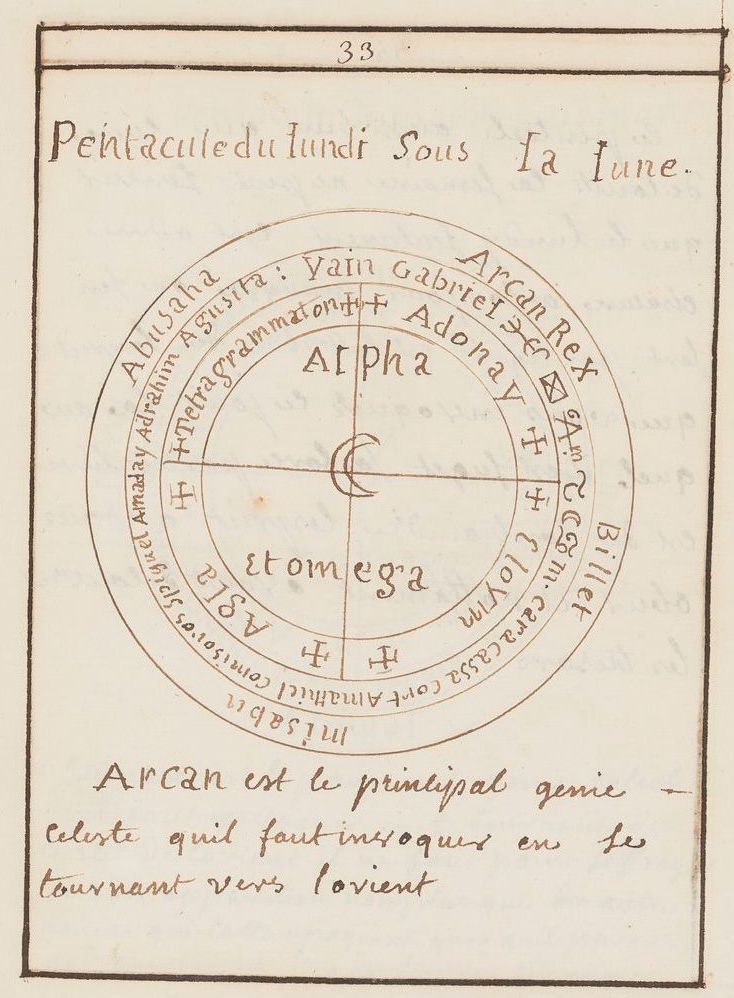 33
Pentacule du lundi Sous la lune.
Abusaha
Arcan Rex
Billet
misabu
Adrahim Agusita : Vain Gabriel
m. caracassa cort Amathiel comisoros Spiguel Amaday
+ Tetragrammaton ✠
+ Adonay ✠
✠ Eloym ✠
✠ Agla ✠
Alpha
et omega
Arcan est le principal genie -
celeste quil faut invoquer en se
tournant vers lorient